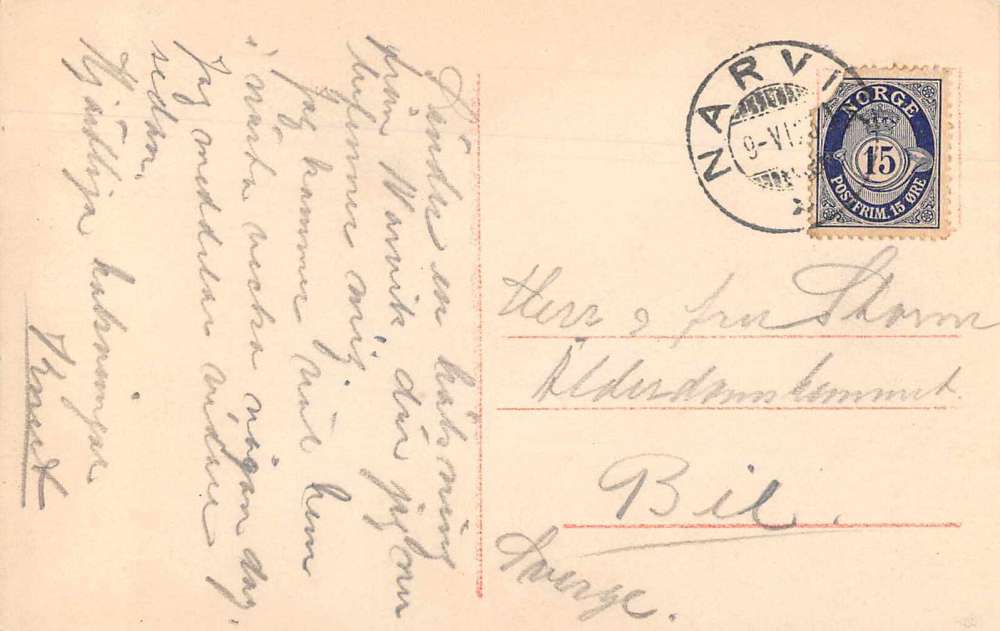 Sänder en hälsning
från Narvik, där jag nu
befinner mig.
Jag kommer nur hem
i nästa vecka någon dag,
Jag meddelar vidare
sedan.
Hjärtliga hälsningar
Knut
NARVI
NORGE
15
POSTFRIM. 15 ØRE
Herr o fru Storm
Ålderdomshemmet.
Bil.
Sverge.